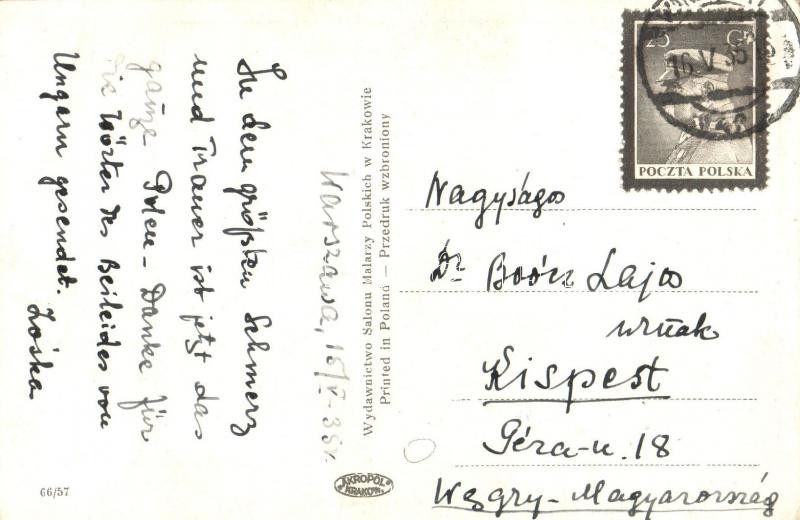 In dem größten Schmerz
und Trauer ist jetzt das
ganze Polen - Danke für
die Wörter des Beileides von
Ungarn gesendet. Zośka
Warszawa, 15/V-35r.
Wydawnictwo Salonu Malarzy Polskich w Krakowie
Printed in Poland — Przedruk wzbroniony
66/57
AKROPOL
KRAKÓW
25 GR
16 V 35
POCZTA POLSKA
Nagyságos
Dr Boócz Lajos
urnak
Kispest
Géza-u. 18
Węgry-Magyarország